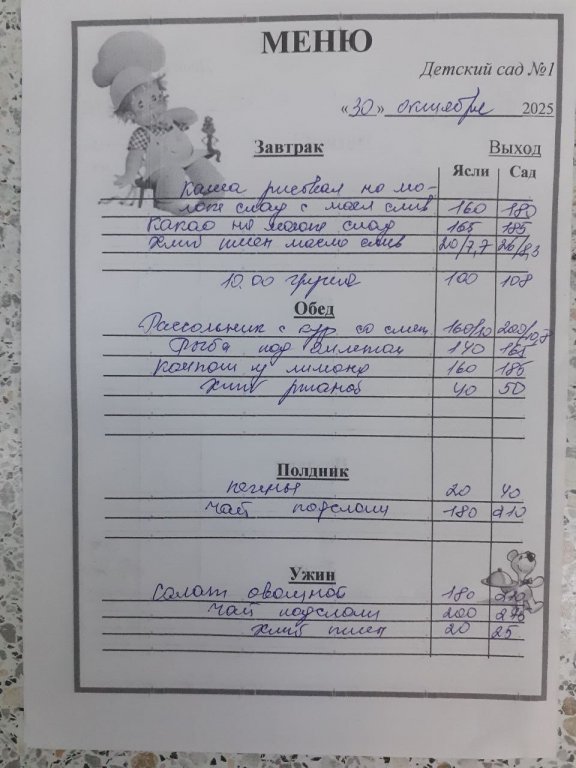 МЕНЮ
Детский сад №1
«30» октября 2025
Завтрак Выход
Ясли Сад
Каша рисовая на мо-
локе слад с масл слив 160 180
Какао на молоке слад 165 185
Хлеб пшен масло слив 20/7,7 26/8,3
10.00 груша 100 108
Обед
Рассольник с кур со смет 160/10 200/10,8
Рыба под омлетом 140 165
Компот из лимона 160 185
Хлеб ржаной 40 50
Полдник
печенье 20 40
Чай подслащ 180 210
Ужин
Салат овощной 180 210
Чай подслащ 200
Хлеб пшен 20 25